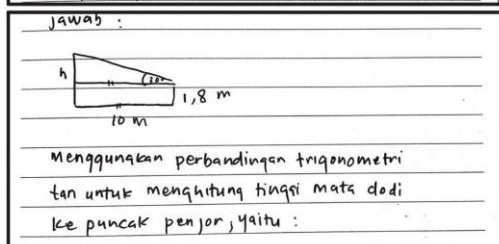 jawab :
h
30°
1,8 m
10 m
Menggunakan perbandingan trigonometri
tan untuk menghitung tinggi mata dodi
ke puncak penjor, yaitu :